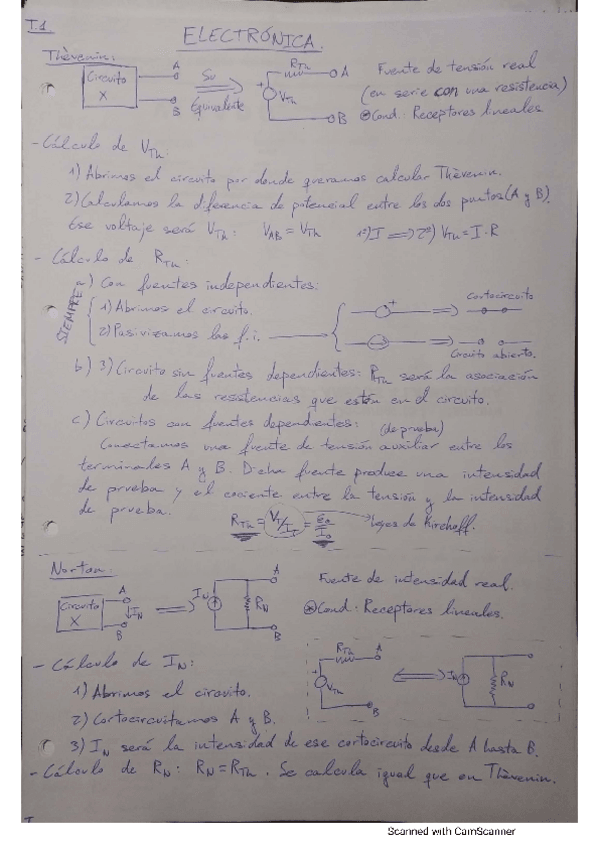 T.1
ELECTRÓNICA.
Thèvenin:
Circuito X
A
B
Su Equivalente
RTh
A
+
VTh
B
Fuente de tensión real
(en serie con una resistencia)
⊛Cond.: Receptores lineales
- Cálculo de VTh:
1) Abrimos el circuito por donde queramos calcular Thèvenin.
2) Calculamos la diferencia de potencial entre los dos puntos (A y B).
Ese voltaje será VTh: VAB = VTh 1º) I ⟹ 2º) VTh = I·R
- Cálculo de RTh:
SIEMPRE
a) Con fuentes independientes:
1) Abrimos el circuito.
2) Pasivizamos las f.i.
+
Cortocircuito
Circuito abierto.
b) 3) Circuito sin fuentes dependientes: RTh será la asociación
de las resistencias que estén en el circuito.
c) Circuitos con fuentes dependientes: (de prueba)
Conectamos una fuente de tensión auxiliar entre los
terminales A y B. Dicha fuente produce una intensidad
de prueba y el cociente entre la tensión y la intensidad
de prueba.
RTh = VT/IT = Eo/Io
Leyes de Kirchoff.
Norton:
Circuito X
A
IN
B
IN
RN
A
B
Fuente de intensidad real.
⊛Cond.: Receptores lineales.
- Cálculo de IN:
1) Abrimos el circuito.
2) Cortocircuitamos A y B.
RTh
A
+
VTh
B
IN
RN
3) IN será la intensidad de ese cortocircuito desde A hasta B.
- Cálculo de RN: RN = RTh. Se calcula igual que en Thèvenin.
Scanned with CamScanner